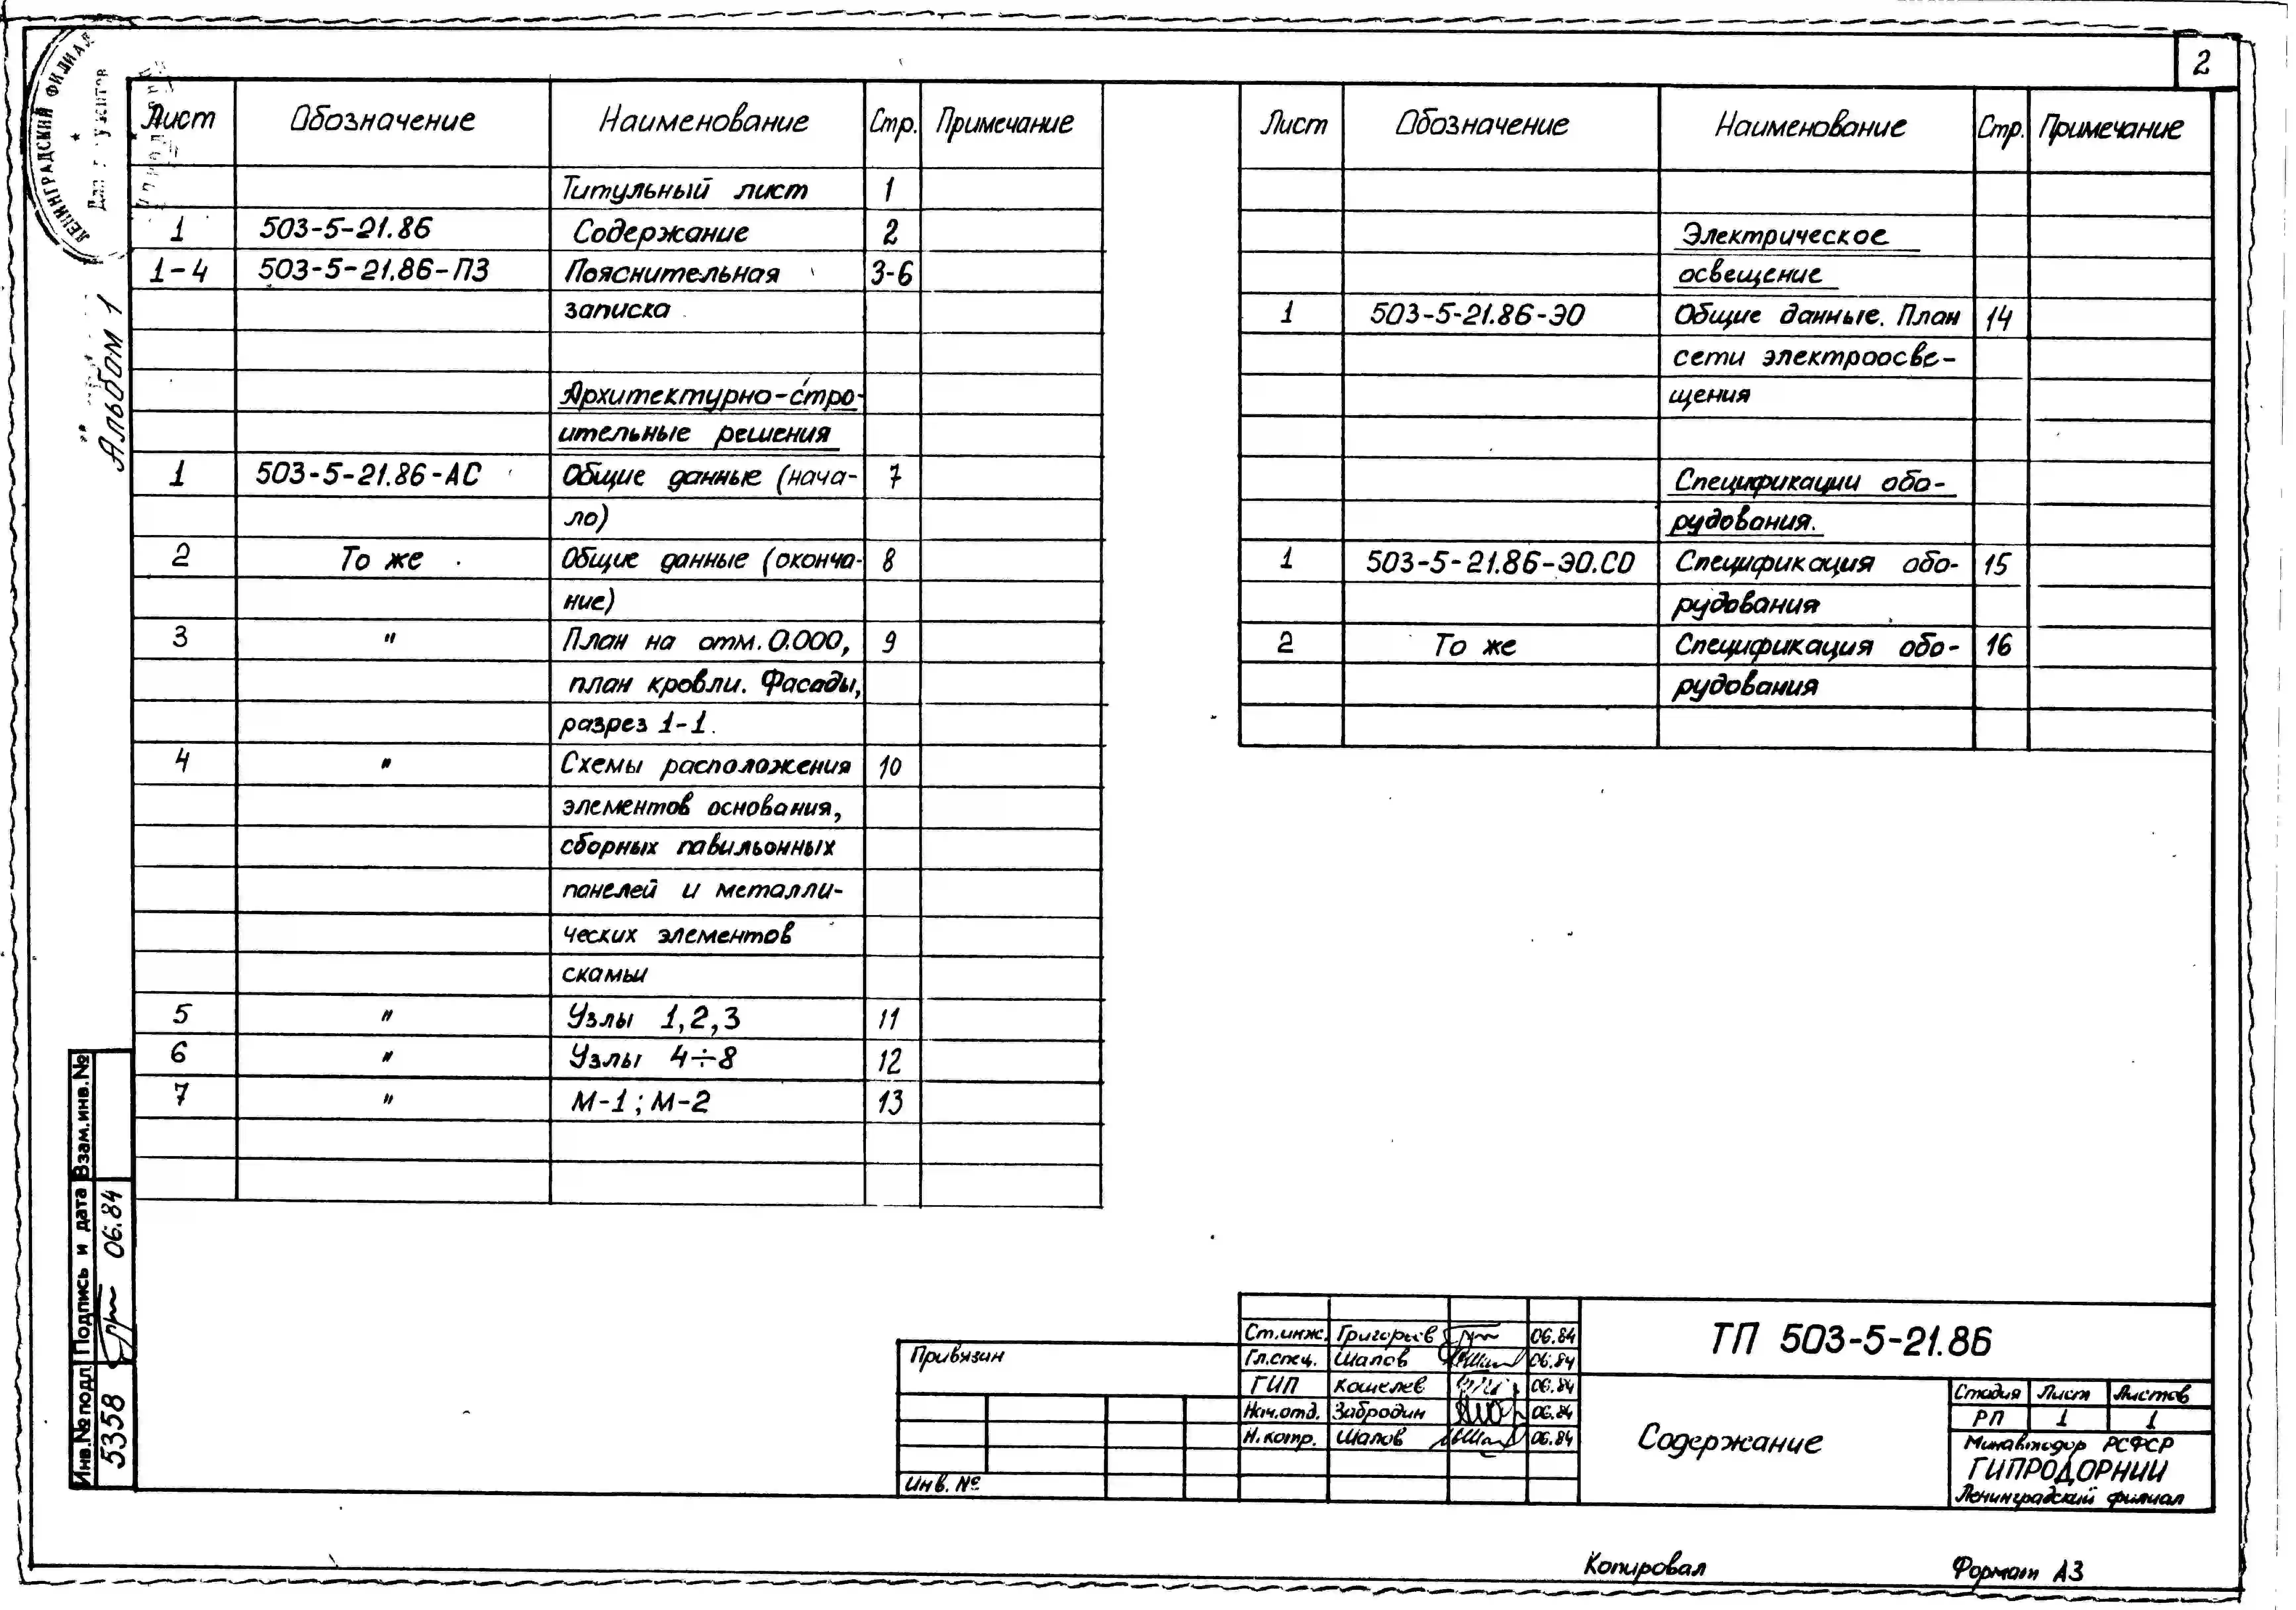 2
ЛЕНИНГРАДСКИЙ ФИЛИАЛ
Альбом 1
Лист Обозначение Наименование Стр. Примечание
Титульный лист 1
1 503-5-21.86 Содержание 2
1-4 503-5-21.86-ПЗ Пояснительная 3-6
записка
Архитектурно-стро-
ительные решения
1 503-5-21.86-АС Общие данные (нача- 7
ло)
2 То же Общие данные (оконча- 8
ние)
3 " План на отм. 0.000, 9
план кровли. Фасады,
разрез 1-1.
4 " Схемы расположения 10
элементов основания,
сборных павильонных
панелей и металли-
ческих элементов
скамьи
5 " Узлы 1,2,3 11
6 " Узлы 4÷8 12
7 " М-1; М-2 13
Лист Обозначение Наименование Стр. Примечание
Электрическое
освещение
1 503-5-21.86-ЭО Общие данные. План 14
сети электроосве-
щения
Спецификации обо-
рудования.
1 503-5-21.86-ЭО.СО Спецификация обо- 15
рудования
2 То же Спецификация обо- 16
рудования
Взам.инв.№
Подпись и дата 06.84
Инв.№ подл 5358
Привязан
Инв. №
Ст.инж. Григорьев 06.84
Гл.спец. Шалов 06.84
ГИП Кошелев 06.84
Нач.отд. Забродин 06.84
Н.контр. Шалов 06.84
ТП 503-5-21.86
Содержание
Стадия Лист Листов
РП 1 1
Минавтодор РСФСР
ГИПРОДОРНИИ
Ленинградский филиал
Копировал Формат А3